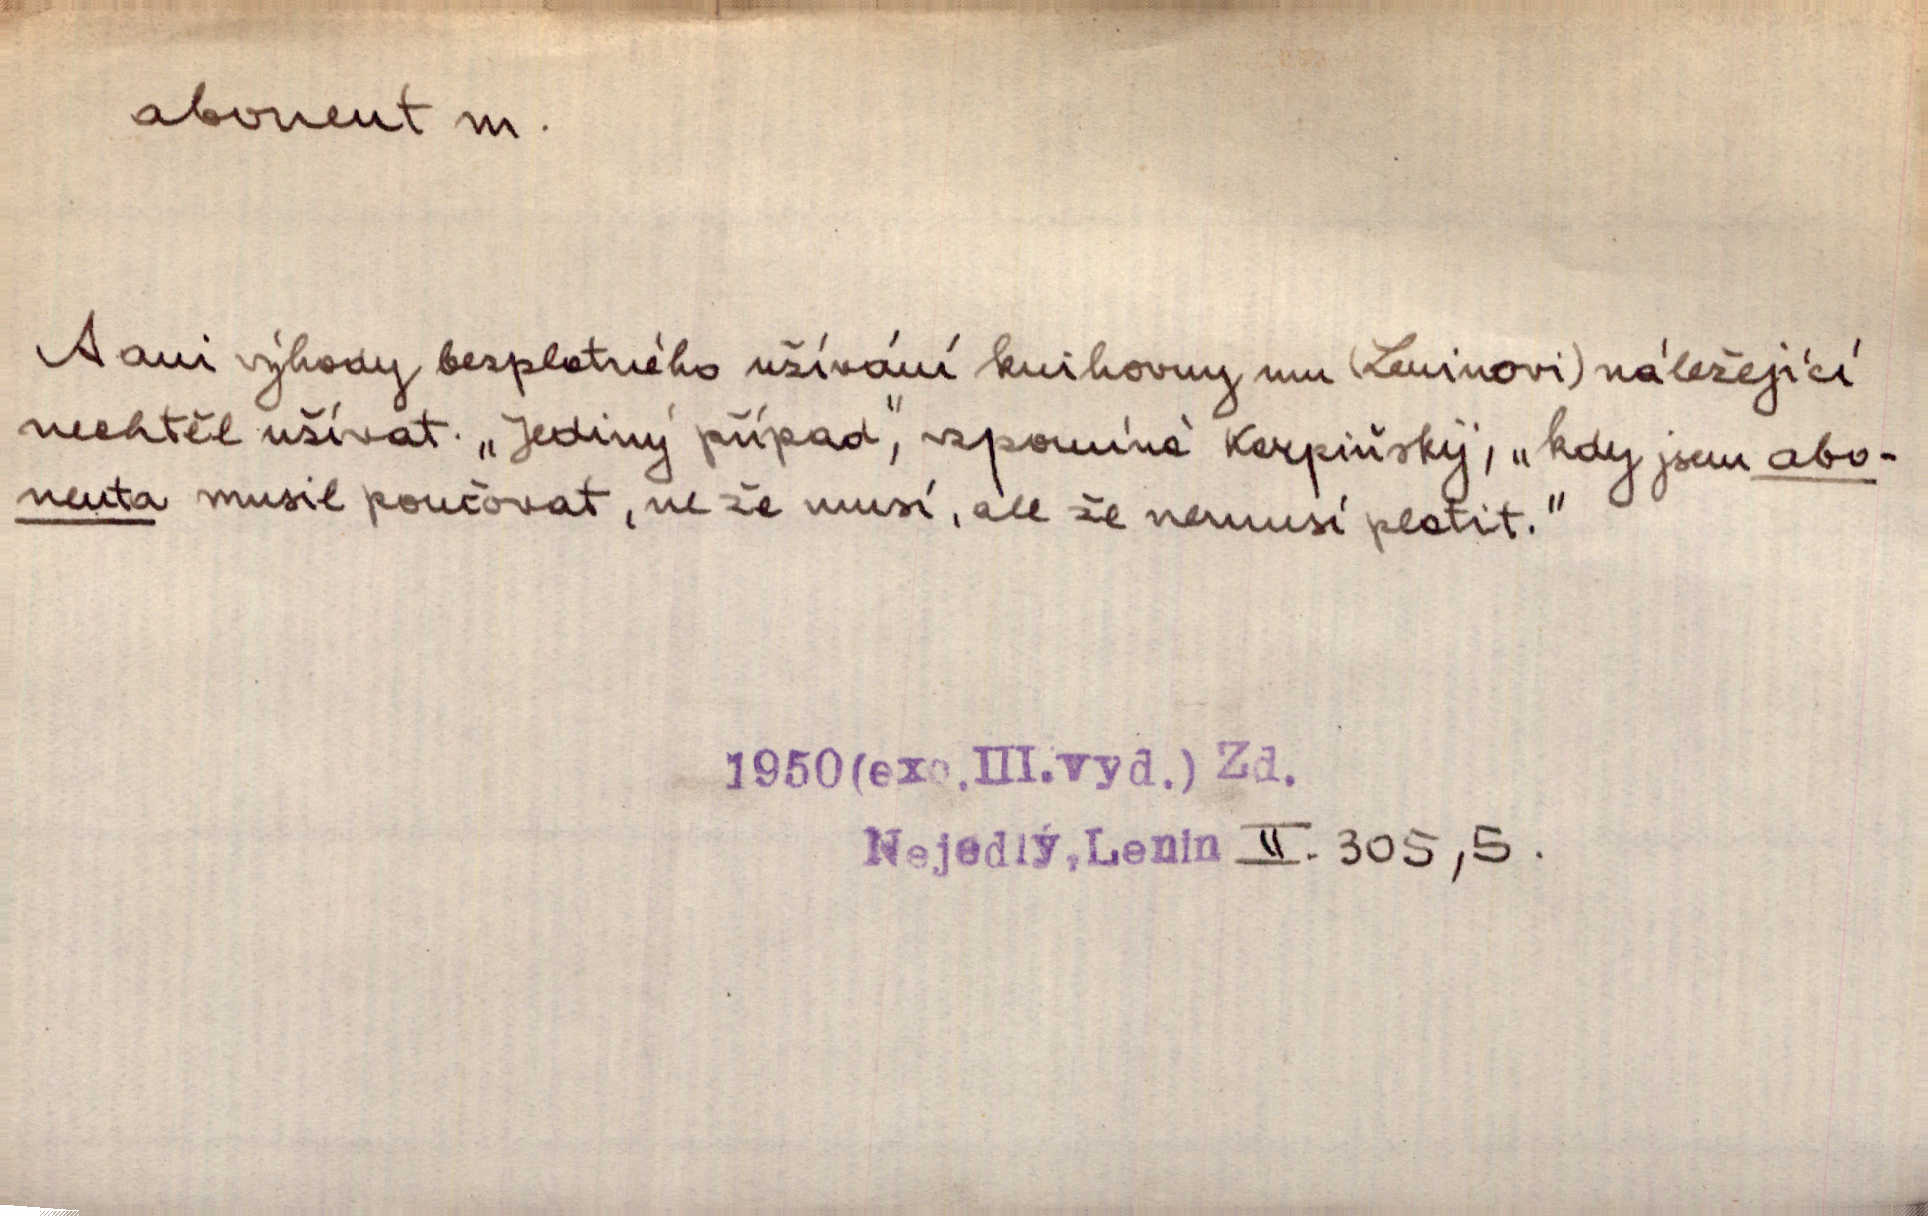 abonent m.
A ani výhody bezplatného užívání knihovny mu (Leninovi) náležející
nechtěl užívat. „Jediný případ", vzpomíná Karpiňský, „kdy jsem abo-
nenta musil poučovat, ne že musí, ale že nemusí platit."
1950(exc.III.vyd.) Zd.
Nejedlý,Lenin II. 305,5.